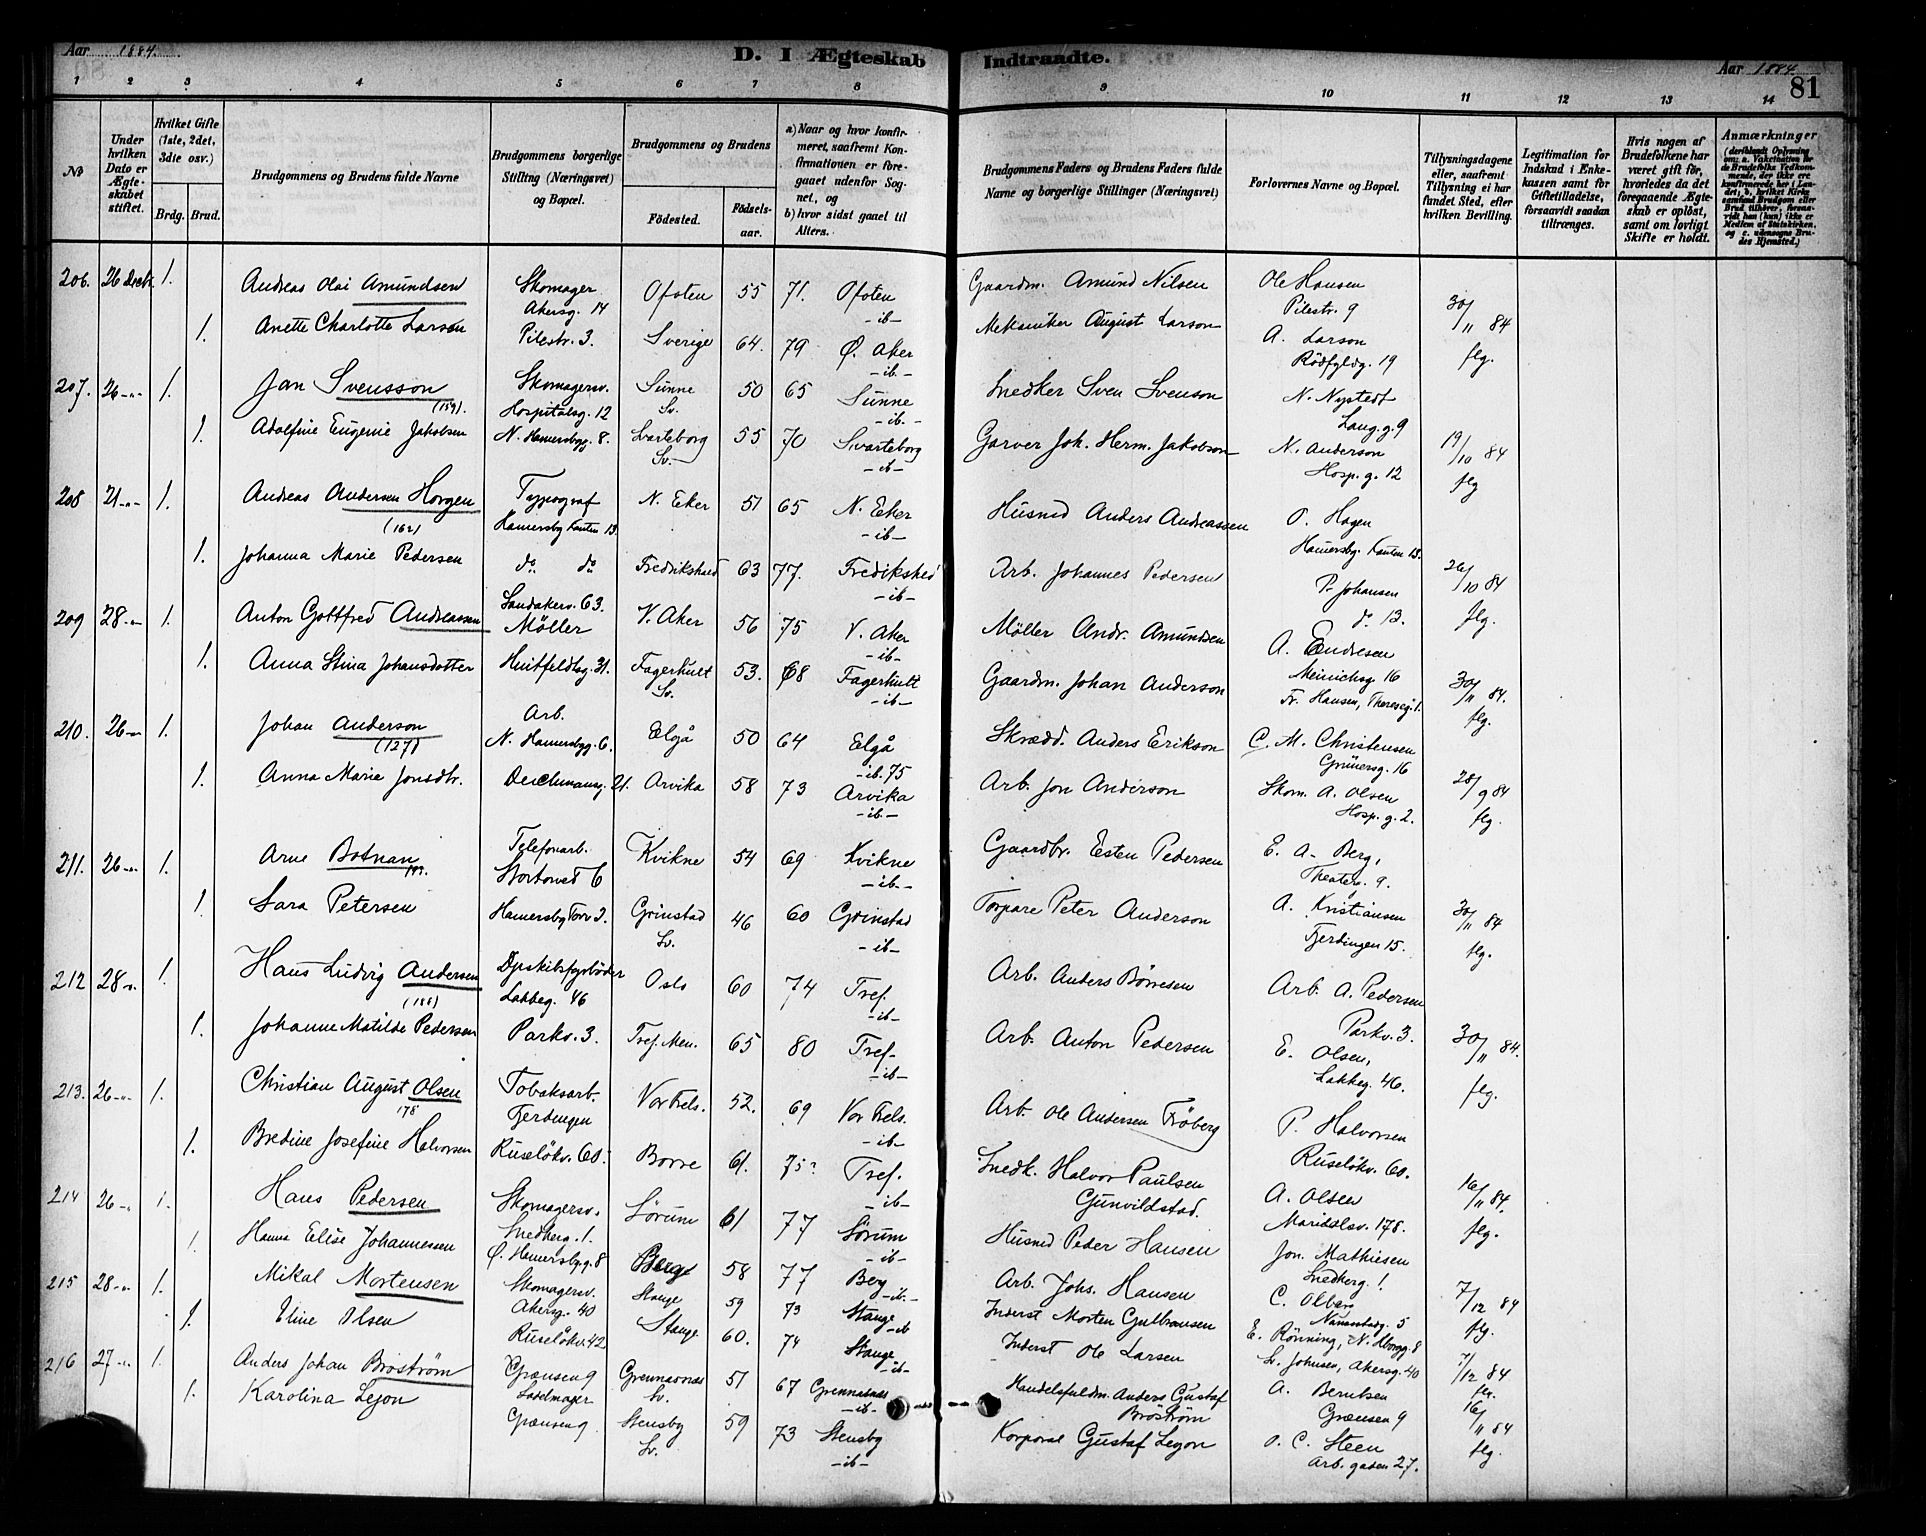 Aar 1884.
D. I Ægteskab Indtraadte.
Aar 1884
81
1 2 3 4 5 6 7 8 9 10 11 12 13 14
No
Under hvilken Dato er Ægteskabet stiftet.
Hvilket Gifte (1ste, 2det, 3die osv.)
Brdg. Brud.
Brudgommens og Brudens fulde Navne
Brudgommens borgerlige Stilling (Næringsvei) og Bopæl.
Brudgommens og Brudens
Fødested. Fødselsaar.
a) Naar og hvor konfirmeret, saafremt Konfirmationen er foregaaet udenfor Sognet, og
b) hvor sidst gaaet til Alters.
Brudgommens Faders og Brudens Faders fulde Navne og borgerlige Stillinger (Næringsvei)
Forlovernes Navne og Bopæl.
Tillysningsdagene eller, saafremt Tillysning ei har fundet Sted, efter hvilken Bevilling.
Legitimation for Indskud i Enkekassen samt for Giftetilladelse, forsaavidt saadan tiltrænges.
Hvis nogen af Brudefolkene har været gift før, hvorledes da det foregaaende Ægteskab er opløst, samt om lovligt Skifte er holdt.
Anmærkninger (deriblandt Oplysning om: a. Vaksination for de Brudefolks Vedkommende, der ikke ere konfirmerede her i Landet; b. hvilket Kirkesamfund Brudgom eller Brud tilhører, forsaavidt han (hun) ikke er Medlem af Statskirken, og c. udensogns Brudes Hjemsted.)
206. 26 Decb. 1. Andreas Olai Amundsen Skomager Akersg. 14 Ofoten 55 71. Ofoten -ib- Gaardm. Amund Nilsen Ole Hansen Pilestr. 9 30/11 84
1. Anette Charlotte Larson Pilestr. 3. Sverige 64. 79 Ø. Aker -ib.- Mekaniker August Larson A. Larson Rödfyldg. 19 flg.
207. 26-"- 1. Jan Svensson (159). Skomagersv. Hospitalsg. 12 Sunne Sv. 50 65 Sunne -ib.- Snedker Sven Svenson N. Nystedt Lang.g. 9 19/10 84
1. Adolfine Eugenie Jakobsen N. Hamersbgg. 8. Svarteborg Sv. 55 70 Svarteborg -ib- Garver Joh. Herm. Jakobson N. Anderson Hosp. g. 12 flg
208 21-"- 1. Andreas Andersen Horgen (162) Typograf Hamersbg Kanten 13. N. Eker 51 65 N. Eker -ib- Husmd Anders Andreassen O. Hagen Hamersbg. Kanten 13. 26/10 84
1. Johanna Marie Pedersen do. do Fredrikshald 63 77. Fredikshld -ib- Arb. Johannes Pedersen P. Johansen do. 13. flg.
209 28-"- 1. Anton Gottfred Andreassen Sandakerv. 63. Möller V. Aker 56 75 V. Aker -ib- Møller Andr. Amundsen A. Endresen Meinichsg. 16 30/11 84.
1. Anna Stina Johansdotter Huitfeldtsg. 31. Fagerhult Sv. 53. 68 Fagerhult -ib- Gaardm. Johan Anderson Fr. Hansen, Theresesg. 1. flg.
210. 26-"- 1. Johan Anderson (127) Arb. N. Hamersbgg. 6. Elgå 50 64 Elgå -ib. 75 Skrædd. Anders Erikson C. M. Christensen Grünersg. 16 28/9 84
1. Anna Marie Jonsdtr. Deichmansg. 21. Arvika 58 73 Arvika -ib- Arb. Jon Anderson Skom. A. Olsen Hosp. g. 2. flg.
211. 26-"- 1. Arne Botnan Telefonarb. Stortorvet 6 Kvikne 54 69 Kvikne -ib.- Gaardbr. Esten Pedersen E. A. Berg, Theaterg. 9. 30/11 84
1. Sara Petersen Hamersbg Torv 2. Grinstad Sv. 46 60 Grinstad -ib- Torpare Peter Anderson A. Kristiansen Fjerdingen 15. flg.
212 28-"- 1. Hans Ludvig Andersen (186) Dpskibsfyrböder Lakkeg. 46 Oslo 60 74 Tref. -ib- Arb. Anders Börresen Arb. A. Pedersen Parkv. 3. 30/11 84.
1. Johanne Matilde Pedersen Parkv. 3. Tref. Men. 65 80 Tref- -ib- Arb. Anton Pedersen E. Olsen, Lakkeg. 46. flg.
213. 26-"- 1. Christian August Olsen 178 Tobaksarb. Fjerdingen Vor Frels. 52. 69 Vor Frels. -ib- Arb. Ole Andersen Fröberg P. Halvorsen Ruselökv. 60. 16/11 84.
1. Bredine Josefine Halvorsen Ruselökv. 60. Borre 61. 75? Tref. -ib- Snedk. Halvor Paulsen Gunvildstad. A. Olsen Maridalsv. 178. flg.
214 26-" 1. Hans Pedersen Skomagersv. Snedkerg. 1. Sörum 61 77 Sörum -ib- Husmd Peder Hansen Jon. Mathiesen Snedkerg. 1. 7/12 84
1. Hanna Elise Johannessen Ø. Hamersbgg. 8 Berg 58 77 Berg -ib.- Arb. Johs. Hansen C. Olbers Nannestadg. 5 flg.
215 28-"- 1. Mikal Mortensen Skomagersv. Akersg. 40 Stange 59 73 Stange -ib Inderst Morten Gulbransen E. Rönning, N. Hborgg. 8 7/12 84
1. Eline Olsen Ruselökv. 42 Stange 60. 74 Stange -ib- Inderst Ole Larsen L. Johnsen, Akersg. 40 flg.
216 27-"- 1. Anders Johan Broström Grænsen 9 Sadelmager Grennasnäs Sv. 51 67 Grennasnäs -ib- Handelsfuldm. Anders Gustaf Broström A. Berntsen Grænsen 9 16/11 84
1. Karolina Lejon Grænsen 9 Stensby Sv. 59 73 Stensby -ib- Korporal Gustaf Lejon O. C. Steen Arb. gaden 27. flg.